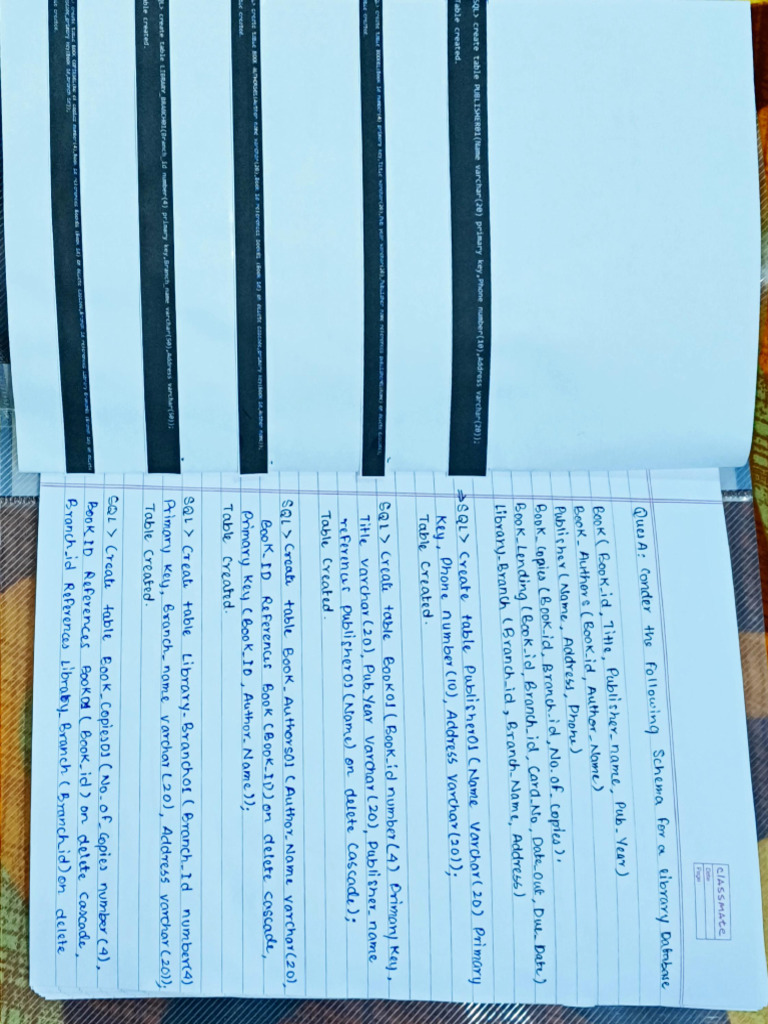 SQL> create table PUBLISHER01(Name varchar(20) primary key,Phone number(10),Address varchar(20));
Table created.
Table created.
SQL> create table LIBRARY_BRANCH01(Branch_id number(4) primary key,Branch_name varchar(50),Address varchar(50));
Table created.
classmate
Date
Page
Ques A: Conder the following Schema for a library Database
Book (Book_id, Title, Publisher_name, Pub_Year)
Book_Authors (Book_id, Author_Name)
Publisher (Name, Address, Phone)
Book_Copies (Book_id, Branch_id, No_of_Copies).
Book_Lending (Book_id, Branch_id, Card_No, Date_out, Due_Date)
Library_Branch (Branch_id, Branch_Name, Address)
⇒ SQL > Create table Publisher01 (Name Varchar(20) Primary
Key, Phone number(10), Address varchar(20));
Table Created.
SQL > Create table Book01 (Book_id number(4) Primary Key,
Title varchar(20), Pub_Year Varchar(20), Publisher_name
references publisher01 (Name) on delete Cascade);
Table Created.
SQL > Create table Book_Authors01 (Author_Name varchar(20),
Book_ID References Book (Book_ID) on delete cascade,
Primary Key (Book_ID, Author_Name));
Table Created.
SQL > Create table Library_Branch01 (Branch_Id number(4)
Primary Key, Branch_name varchar(20), Address varchar(20));
Table Created.
SQL > Create table Book_Copies01 (No_of_Copies number(4),
Book_ID References Book01 (Book_id) on delete cascade,
Branch_id References Library_Branch (Branch_id) on delete